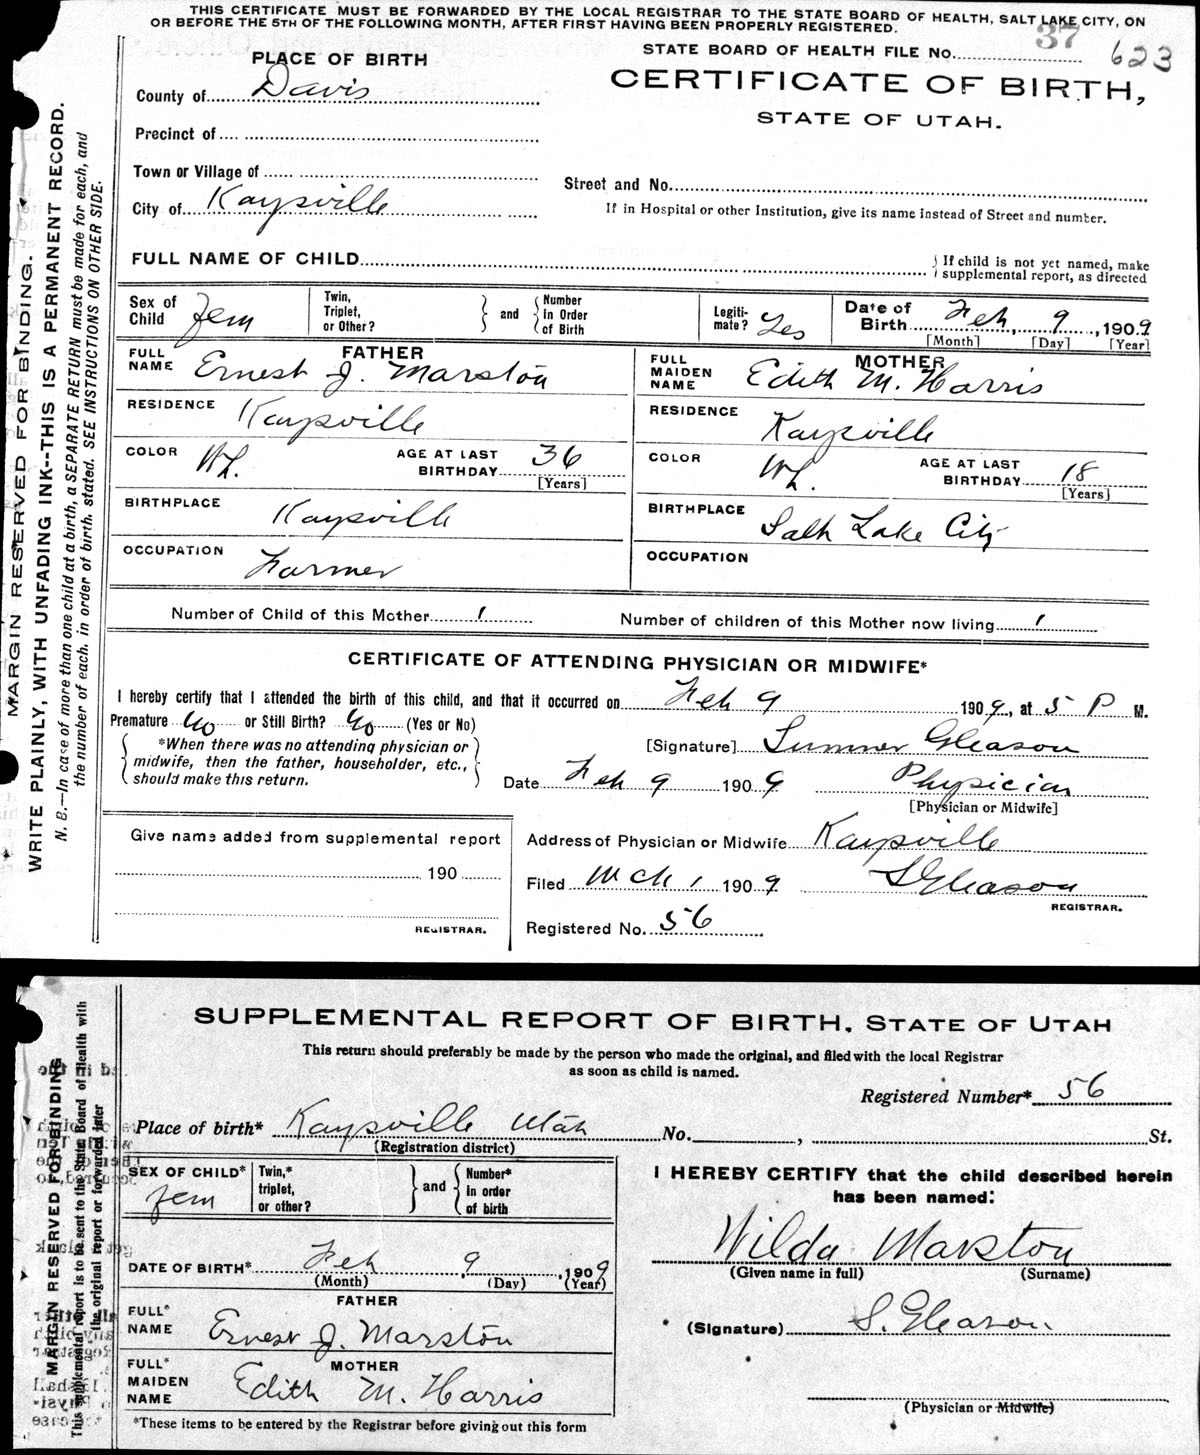 THIS CERTIFICATE MUST BE FORWARDED BY THE LOCAL REGISTRAR TO THE STATE BOARD OF HEALTH, SALT LAKE CITY, ON
OR BEFORE THE 5TH OF THE FOLLOWING MONTH, AFTER FIRST HAVING BEEN PROPERLY REGISTERED.
37
PLACE OF BIRTH
STATE BOARD OF HEALTH FILE No. 623
County of Davis
CERTIFICATE OF BIRTH,
STATE OF UTAH.
Precinct of
Town or Village of
Street and No.
City of Kaysville
If in Hospital or other Institution, give its name instead of Street and number.
FULL NAME OF CHILD
If child is not yet named, make
supplemental report, as directed
Sex of Child Fem
Twin, Triplet, or Other?
and
Number In Order of Birth
Legiti-mate? Yes
Date of Birth Feb, 9, 1909
[Month] [Day] [Year]
FATHER
FULL NAME Ernest J. Marston
MOTHER
FULL MAIDEN NAME Edith M. Harris
RESIDENCE Kaysville
RESIDENCE Kaysville
COLOR Wh.
AGE AT LAST BIRTHDAY 36
[Years]
COLOR Wh.
AGE AT LAST BIRTHDAY 18
[Years]
BIRTHPLACE Kaysville
BIRTHPLACE Salt Lake City
OCCUPATION Farmer
OCCUPATION
Number of Child of this Mother 1
Number of children of this Mother now living 1
CERTIFICATE OF ATTENDING PHYSICIAN OR MIDWIFE*
I hereby certify that I attended the birth of this child, and that it occurred on Feb 9 1909, at 5 P M.
Premature No or Still Birth? No (Yes or No)
*When there was no attending physician or
midwife, then the father, householder, etc.,
should make this return.
[Signature] Sumner Gleason
Date Feb 9 1909
Physician
[Physician or Midwife]
Give name added from supplemental report
190
REGISTRAR.
Address of Physician or Midwife Kaysville
Filed Mch 1, 1909
S Gleason
REGISTRAR.
Registered No. 56
MARGIN RESERVED FOR BINDING.
WRITE PLAINLY, WITH UNFADING INK--THIS IS A PERMANENT RECORD.
N. B.—In case of more than one child at a birth, a SEPARATE RETURN must be made for each, and
the number of each, in order of birth, stated. SEE INSTRUCTIONS ON OTHER SIDE.
SUPPLEMENTAL REPORT OF BIRTH, STATE OF UTAH
This return should preferably be made by the person who made the original, and filed with the local Registrar
as soon as child is named.
Registered Number* 56
Place of birth* Kaysville Utah No. , St.
(Registration district)
SEX OF CHILD* Fem
Twin,* triplet, or other?
and
Number* in order of birth
I HEREBY CERTIFY that the child described herein
has been named:
Wilda Marston
(Given name in full) (Surname)
DATE OF BIRTH* Feb 9, 1909
(Month) (Day) (Year)
FATHER
FULL* NAME Ernest J. Marston
(Signature) S. Gleason
MOTHER
FULL* MAIDEN NAME Edith M. Harris
(Physician or Midwife)
*These items to be entered by the Registrar before giving out this form
MARGIN RESERVED FOR BINDING
This supplemental report is to be sent to the State Board of Health with
the original report or forwarded later